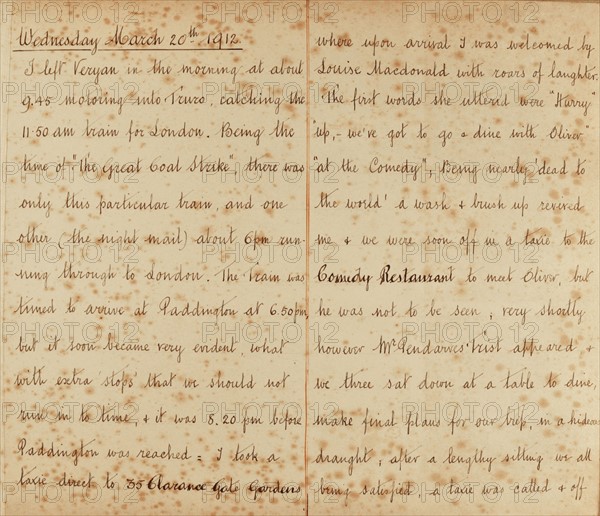 Wednesday March 20th 1912.
I left Veryan in the morning at about
9.45 motoring into Truro, catching the
11-50 am train for London. Being the
time of "The Great Coal Strike", there was
only this particular train, and one
other (the night mail) about 6pm run-
ning through to London. The Train was
timed to arrive at Paddington at 6.50pm,
but it soon became very evident, what
with extra stops that we should not
run in to time, & it was 8.20 pm before
Paddington was reached: I took a
taxie direct to 35 Clarance Gate Gardens
where upon arrival I was welcomed by
Louise Macdonald with roars of laughter.
The first words she uttered were "Hurry"
"up, - we've got to go & dine with Oliver"
"at the Comedy"; Being nearly 'dead to
the world' a wash & brush up revived
me & we were soon off in a taxie to the
Comedy Restaurant to meet Oliver, but
he was not to be seen; very shortly
however Mr Pendarves Vrist appeared &
we three sat down at a table to dine,
make final plans for our trip, in a hideous
draught; after a lengthy sitting we all
being satisfied, a taxie was called & off